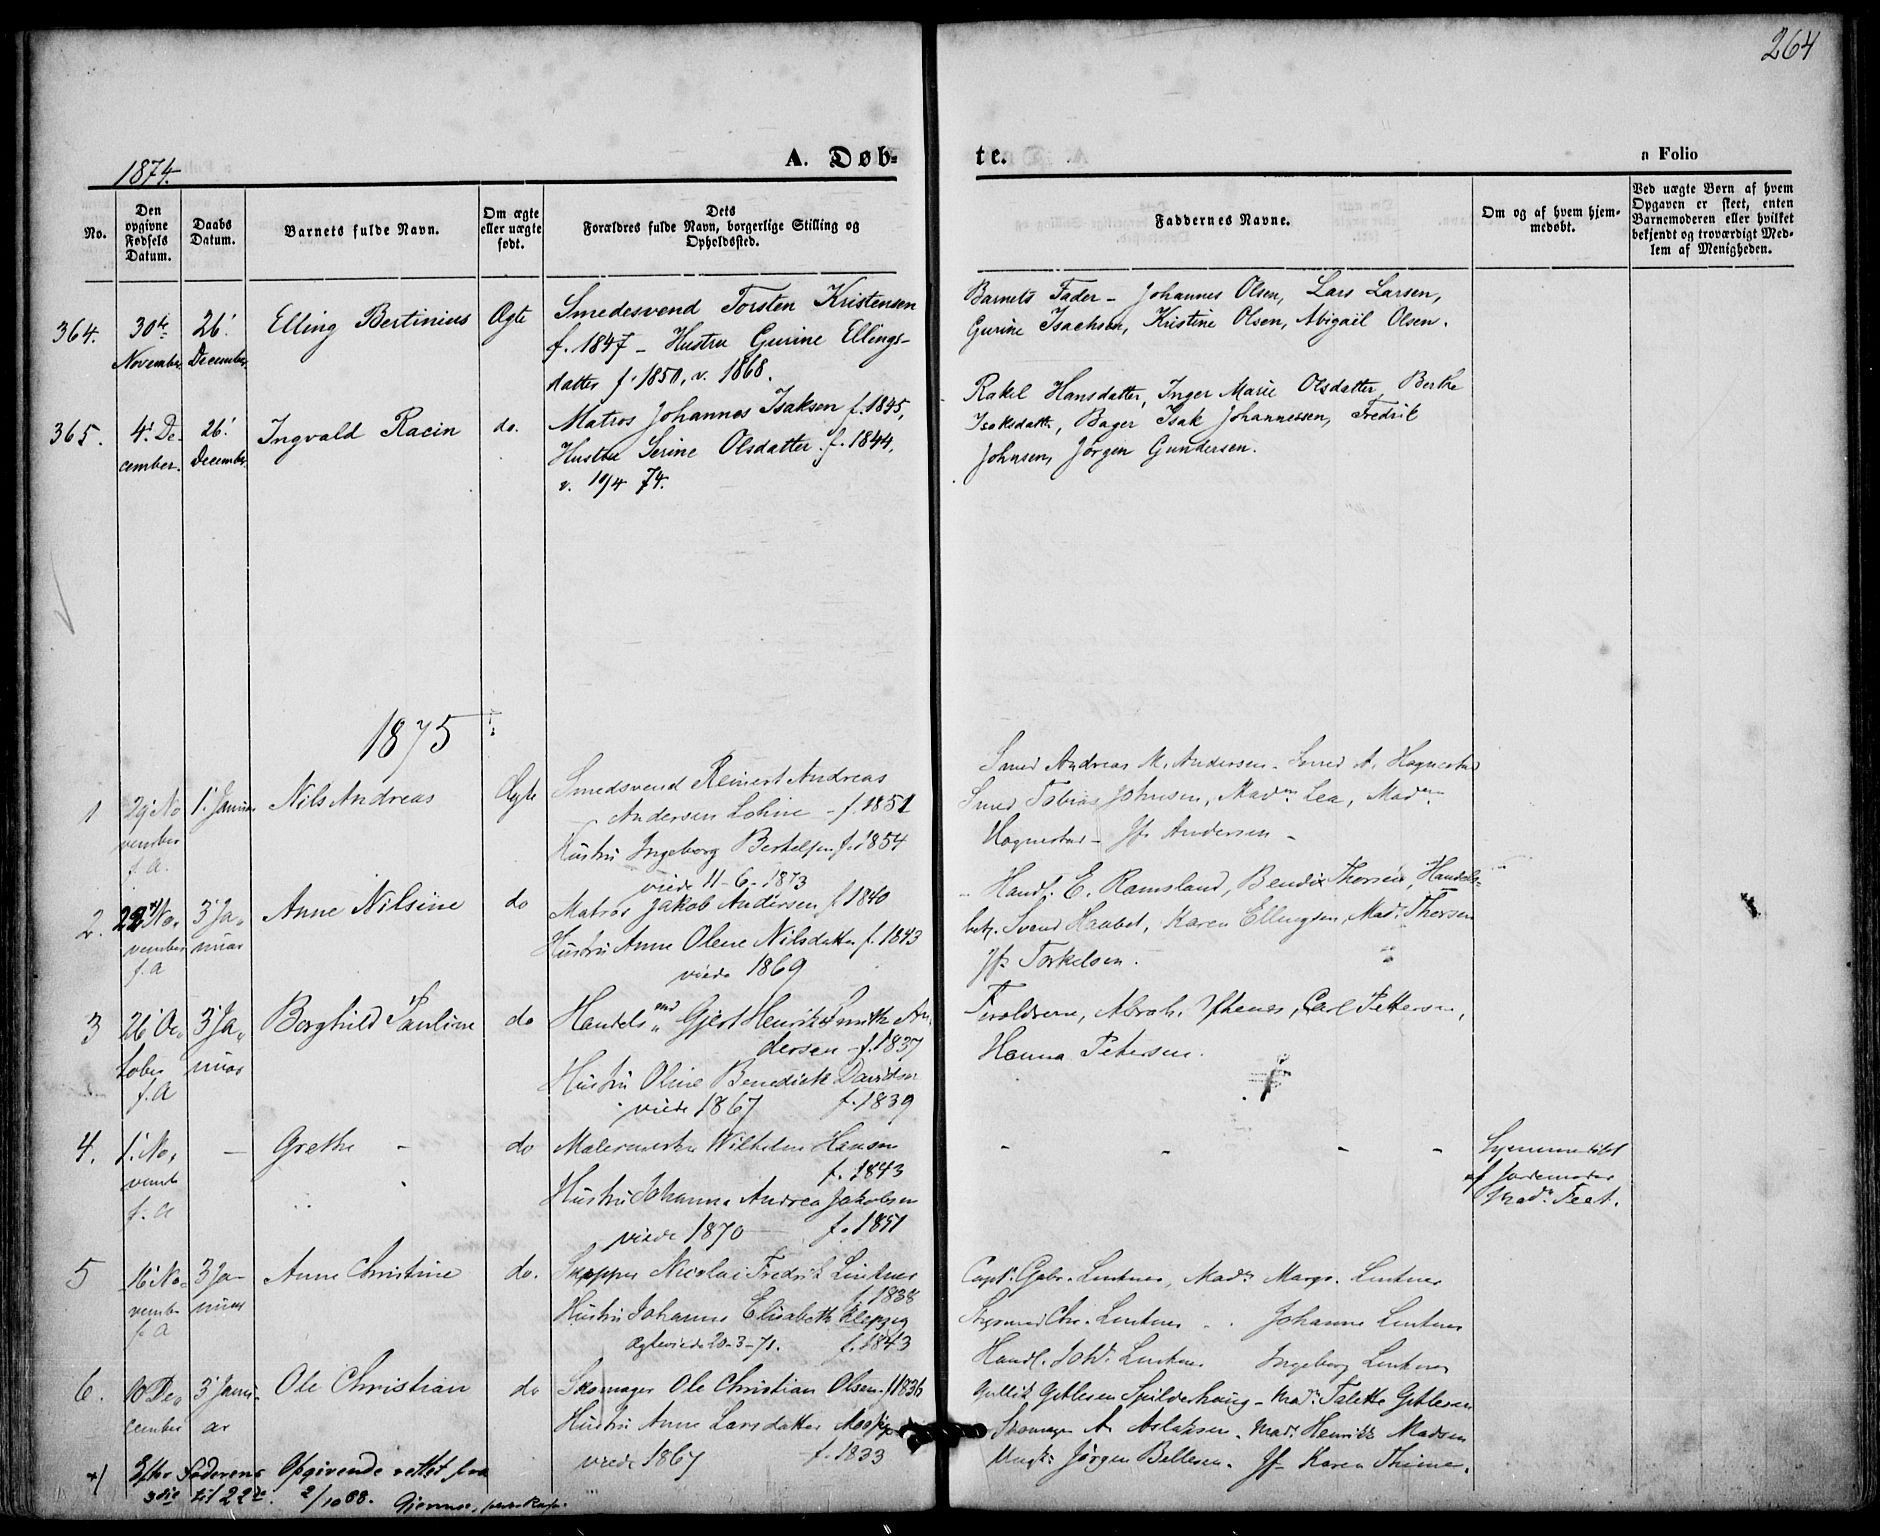 264
1874.
A. Døb-
te.
n Folio
No.
Den opgivne Fødsels Datum.
Daabs Datum.
Barnets fulde Navn.
Om ægte eller uægte født.
Dets Forældres fulde Navn, borgerlige Stilling og Opholdssted.
Faddernes Navne.
Om og af hvem hjemmedøbt.
Ved uægte Børn af hvem Opgaven er skeet, enten Barnemoderen eller hvilket bekjendt og troværdigt Medlem af Menigheden.
364.
30te November.
26' December.
Elling Bertinius
Ægte
Smedesvend Torsten Kristensen
f. 1847 – Hustru Gurine Ellings-
datter f. 1850, v. 1868.
Barnets Fader – Johannes Olsen, Lars Larsen,
Gurine Isachsen, Kristine Olsen, Abigaël Olsen.
365.
4' De-
cember.
26' December
Ingvald Racin
do.
Matros Johannes Isaksen f. 1845,
Hustru Serine Olsdatter f. 1844,
v. 10/4 74.
Rakel Hansdatter, Inger Marie Olsdatter, Berthe
Isaksdatt., Bager Isak Johannessen, Fredrik
Johnsen, Jørgen Gundersen.
1875
1
29' No
vember
f. A.
1' Januar
Nils Andreas
Ægte
Smedsvend Reinert Andreas
Andersen – f. 1851
Hustru Ingeborg Bertelsen f. 1854
viede 11-6-1873
Smed Andreas M. Andersen – Smed A. Hognestad
Smed Tobias Johnsen, Madm Lea, Madm
Hognestad – Jfr Andersen –
2.
22' No-
vember
f. A
3' Ja-
nuar
Anne Nilsine
do
Matros Jakob Andersen f. 1840
Hustru Anne Olene Nilsdatter f. 1843
viede 1869
Handl. E. Ramsland, Bendix Thorsen, Handels-
betj. Svend Haabet, Karen Ellingsen, Mad. Thorsen
Jfr Torkelsen.
3
26' Oc-
tober
f. A
3' Ja-
nuar
Borghild Pauline
do
Handelsmd Gjert Henrik Smith An-
dersen – f. 1837
Hustru Oline Benedicte Davidsen
viede 1867 f. 1839
Forældrene, Abrah. Carl Pettersen,
Hanna Petersen.
4.
1' No-
vemb
f. A
–
Grethe –
do
Malermester Wilhelm Hansen
f. 1843
Hustru Johanna Andrea Jakobsen
viede 1870 – f. 1851
– – – –
Hjemmedøbt
af Jordemoder
Madm
5
16' No-
vemb.
f. A
3 Ja-
nuar
Anne Christine
do.
Skipper Nicolai Fredrik Lintner
f. 1838
Hustru Johanne Elisabeth
Ægteviede 20-3-71. f. 1843
Capt. Gabr. Lintner, Madm Margr. Lintner
Chr. Lintner Johanne Lintner
Handl. Joh. Lintner Ingeborg Lintner
6.
10 De-
cember
3' Janu-
ar
Ole Christian
do
Skomager Ole Christian Olsen f 1836
Hustru Anne Larsdatter
viede 1867 – f. 1833
Gitlesen Spilderhaug – Madm Talette Gitlesen
Skomager A. Aslaksen – Madm Henrikke Madsen
Ungk. Jørgen Bellesen – Jfr Karen Thime.
Efter Faderens Opgivende rettet fra
3die til 22de 2/10 88.